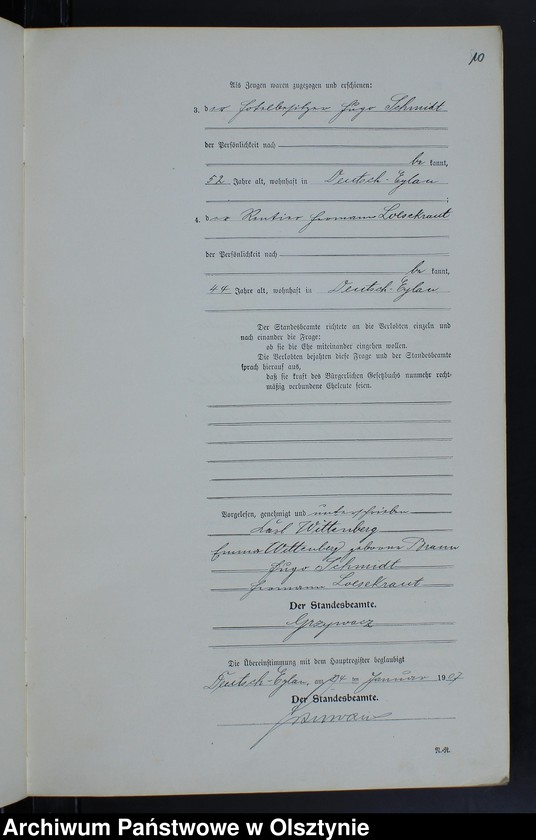 10
Als Zeugen waren zugezogen und erschienen:
3. der Hotelbesitzer Hugo Schmidt
der Persönlichkeit nach
be kannt,
52 Jahre alt, wohnhaft in Deutsch-Eylau
;
4. der Rentier Hermann Loesekraut
der Persönlichkeit nach
be kannt,
44 Jahre alt, wohnhaft in Deutsch-Eylau
Der Standesbeamte richtete an die Verlobten einzeln und
nach einander die Frage:
ob sie die Ehe miteinander eingehen wollen.
Die Verlobten bejahten diese Frage und der Standesbeamte
sprach hierauf aus,
daß sie kraft des Bürgerlichen Gesetzbuchs nunmehr recht-
mäßig verbundene Eheleute seien.
Vorgelesen, genehmigt und unterschrieben
Karl Wittenberg
Emma Wittenberg geborene
Hugo Schmidt
Hermann Loesekraut
Der Standesbeamte.
Grzywacz
Die Übereinstimmung mit dem Hauptregister beglaubigt
Deutsch-Eylau, am 24 ten Januar 1907
Der Standesbeamte.
N.-R.
Archiwum Państwowe w Olsztynie